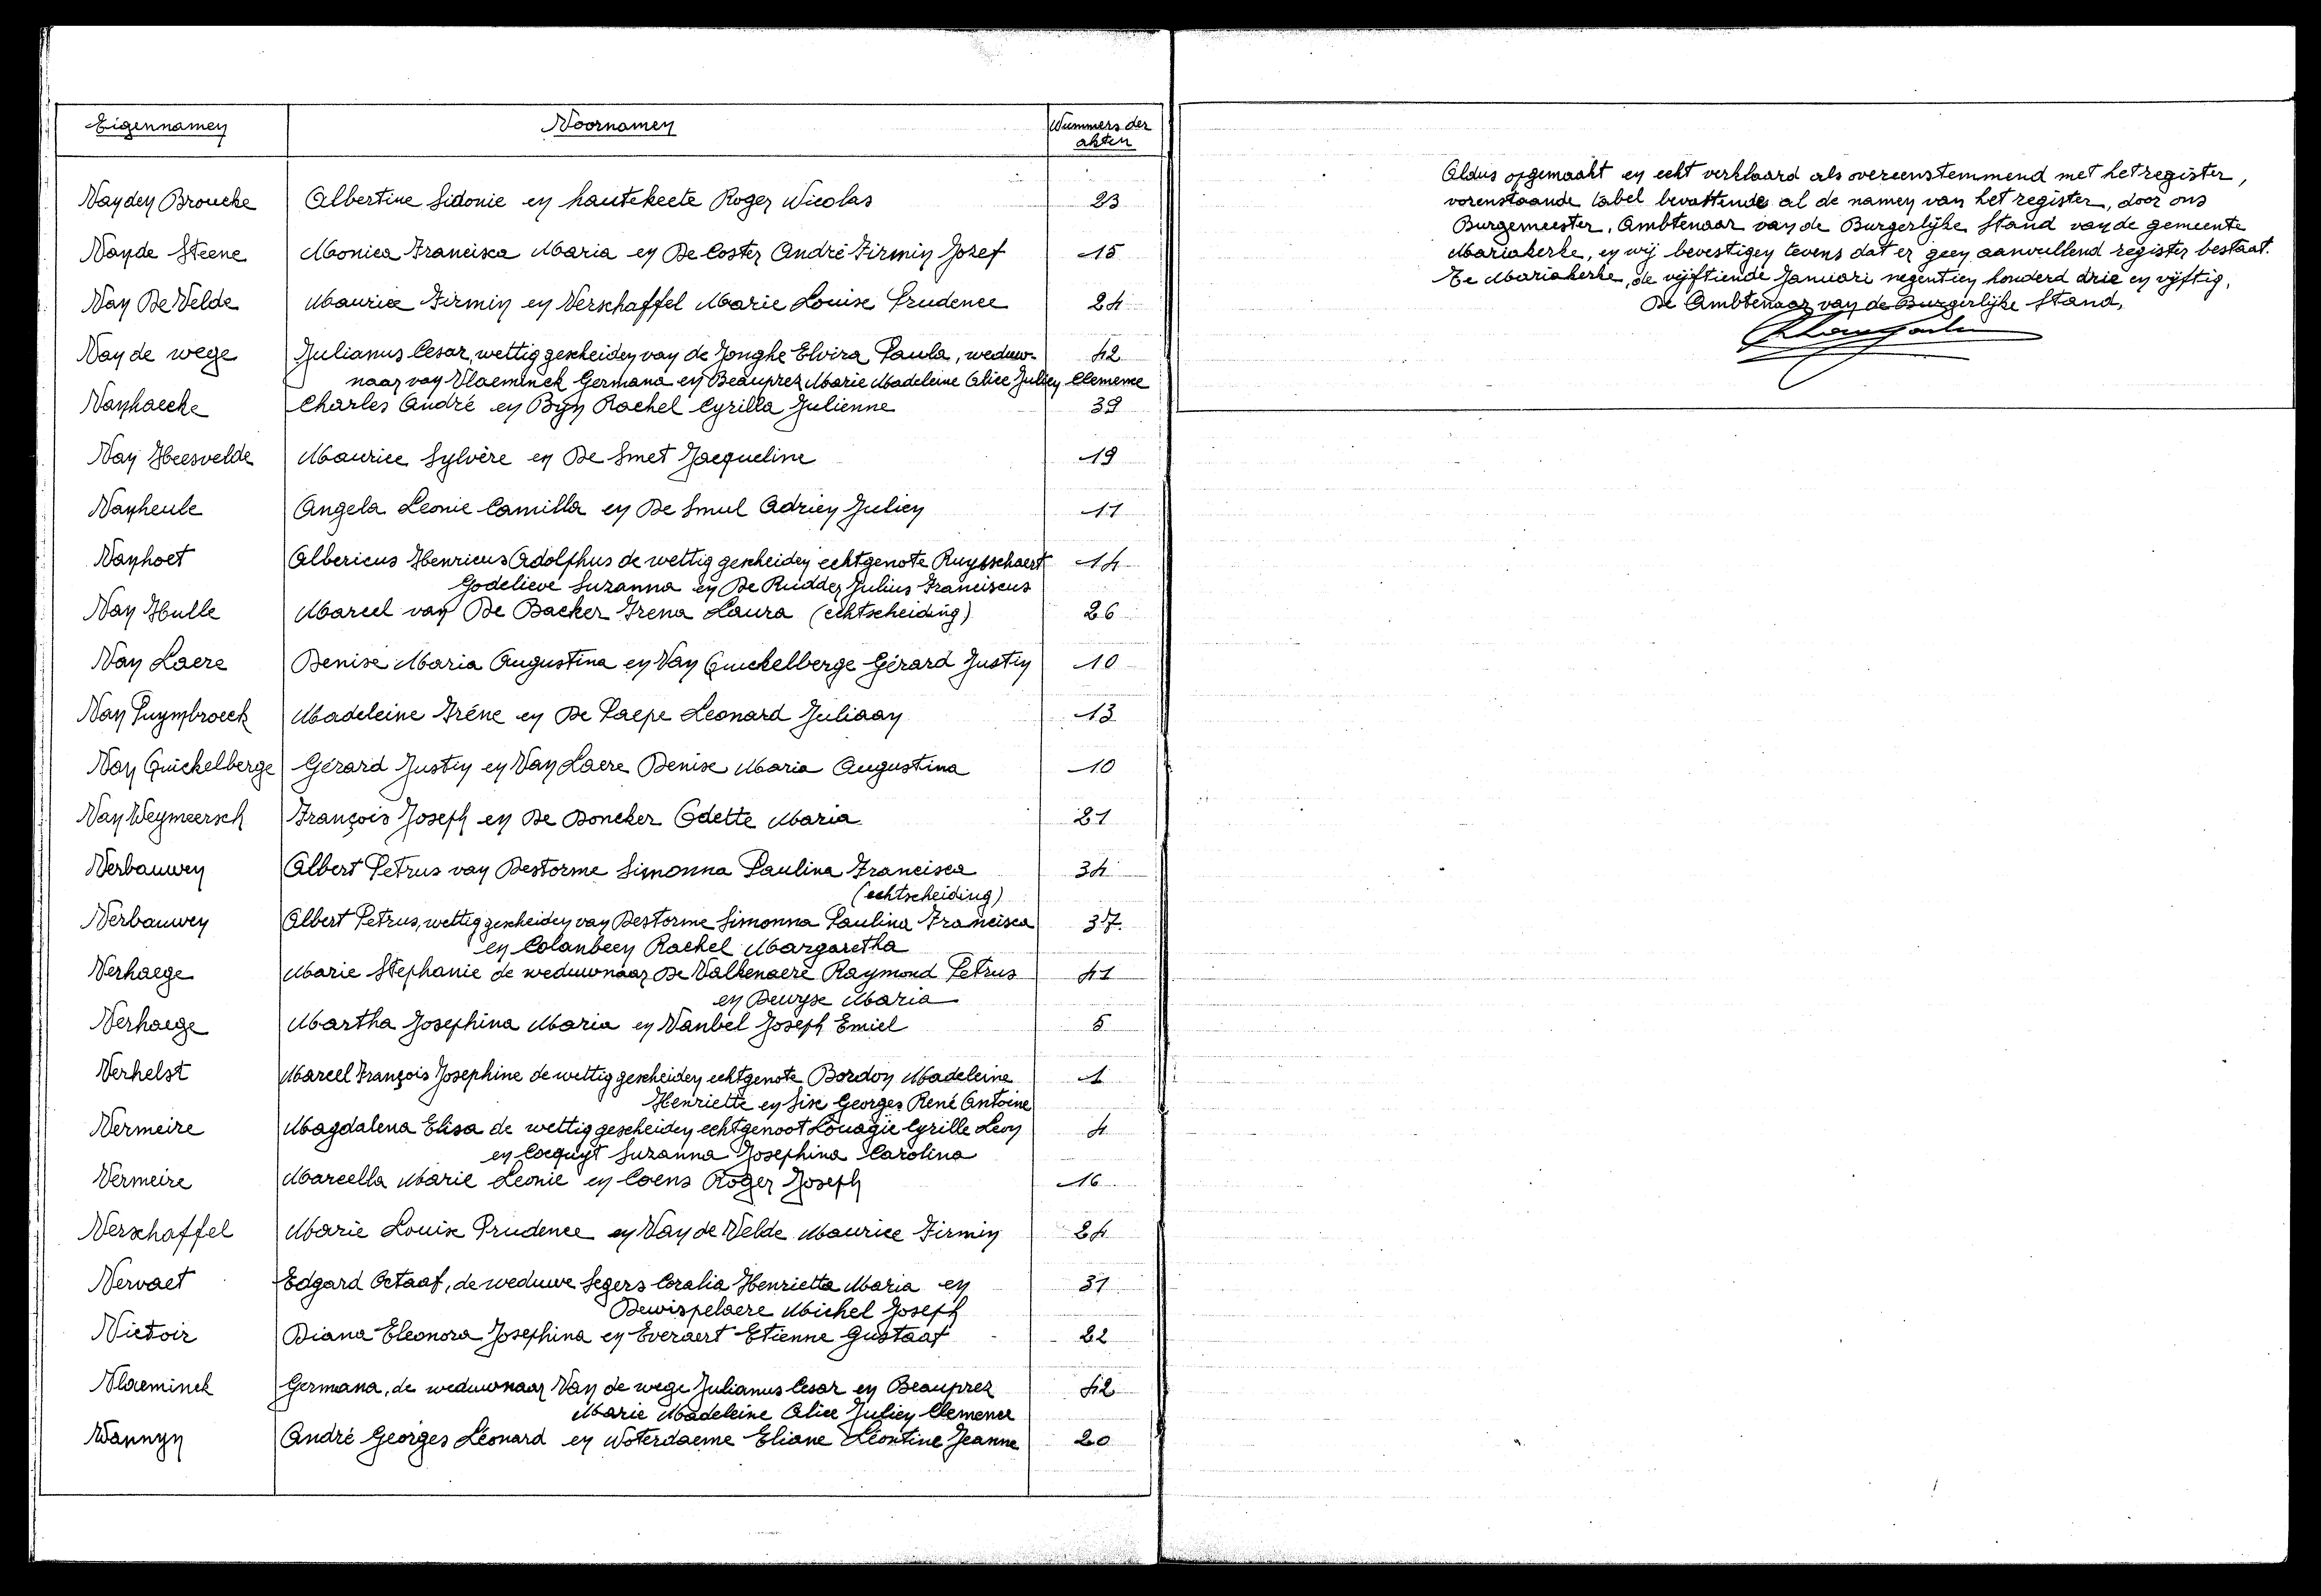 Eigennamen Voornamen Nummers der
akten
Van den Broucke Albertine Sidonie en hautekeete Roger Nicolas 23
Van de Steene Monica Francisca Maria en De Coster André Firmin Jozef 15
Van De Velde Maurice Firmin en Verschaffel Marie Louise Prudence 24
Van de wege Julianus Cesar, wettig gescheiden van de Jonghe Elvira Paula, weduw- 42
naar van Vlaeminck Germana en Beauprez Marie Madeleine Alice Julien Clemence
Vanhaecke Charles André en Byn Rachel Cyrilla Julienne 39
Van Heesvelde Maurice Sylvère en De Smet Jacqueline 19
Vanheule Angela Leonie Camilla en De Smul Adrien Julien 11
Vanhoet Albericus Henricus Adolphus de wettig gescheiden echtgenote Ruysschaert 14
Godelieve Suzanna en De Ridder Julius Franciscus
Van Hulle Marcel van De Backer Irena Laura (echtscheiding) 26
Van Laere Denise Maria Augustina en Van Quickelberge Gérard Justin 10
Van Puymbroeck Madeleine Iréne en De Paepe Leonard Juliaan 13
Van Quickelberge Gérard Justin en Van Laere Denise Maria Augustina 10
Van Weymeersch François Joseph en De Doncker Odette Maria 21
Verbauwen Albert Petrus van Destorme Simonna Paulina Francisca 34
(echtscheiding)
Verbauwen Albert Petrus, wettig gescheiden van Destorme Simonna Paulina Francisca 37
en Colanbeen Rachel Margaretha
Verhaege Marie Stephanie de weduwnaar De Valkenaere Raymond Petrus 41
en Dewyse Maria
Verhaege Martha Josephina Maria en Vanbel Joseph Emiel 5
Verhelst Marcel François Josephine de wettig gescheiden echtgenote Bordon Madeleine 1
Henriette en Sise Georges René Antoine
Vermeire Magdalena Elisa de wettig gescheiden echtgenoot Louagie Cyrille Leon 4
en Cocquyt Suzanna Josephina Carolina
Vermeire Marcella Marie Leonie en Coens Roger Joseph 16
Verschaffel Marie Louise Prudence en Van de Velde Maurice Firmin 24
Vervaet Edgard Octaaf, de weduwe Segers Coralia Henrietta Maria en 31
Dewispelaere Michel Joseph
Victoir Diana Eleonora Josephina en Everaert Etienne Gustaaf 22
Vlaeminck Germana, de weduwnaar Van de wege Julianus Cesar en Beauprez 42
Marie Madeleine Alice Julien Clemence
Wannyn André Georges Léonard en Woterdaeme Eliane Léontine Jeanne 20
Aldus opgemaakt en echt verklaard als overeenstemmend met het register,
vorenstaande tabel bevattende al de namen van het register, door ons
Burgemeester, Ambtenaar van de Burgerlijke Stand van de gemeente
Mariakerke, en wij bevestigen tevens dat er geen aanvullend register bestaat.
Te Mariakerke, de vijftiende Januari negentien honderd drie en vijftig,
De Ambtenaar van de Burgerlijke Stand,